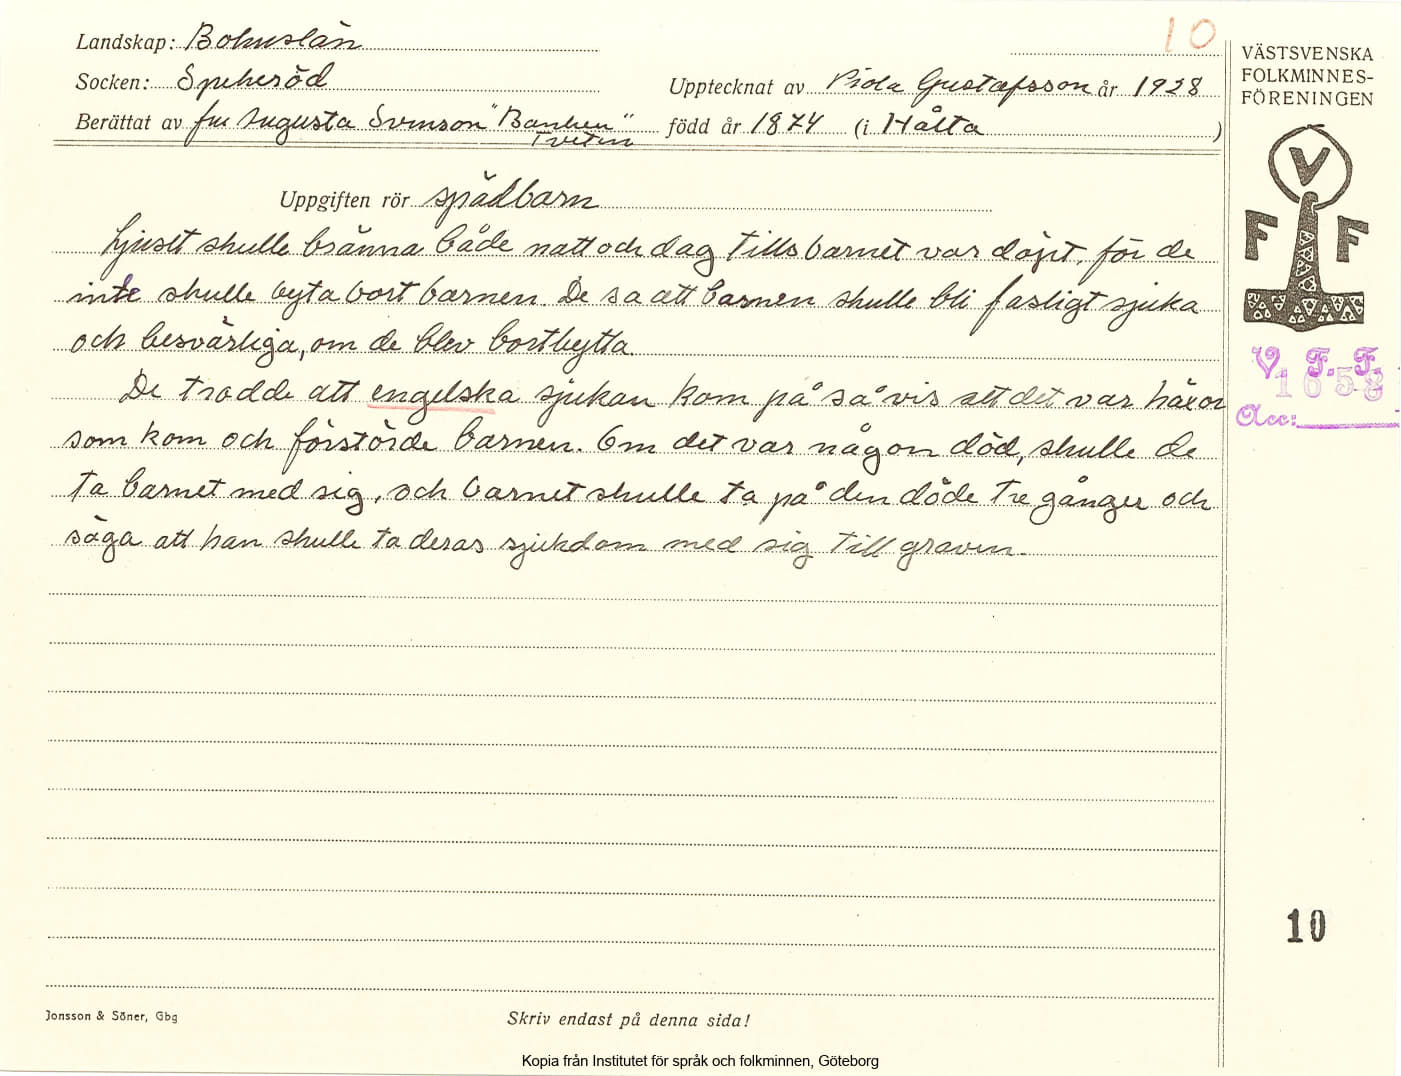 10
Landskap: Bohuslän
Socken: Spekeröd
Upptecknat av Viola Gustafsson år 1928
Berättat av fru Augusta Svenson "Banken" Tveten född år 1874 (i Hålta )
Uppgiften rör spädbarn
Ljuset skulle bränna både natt och dag tills barnet var döpt, för de
inte skulle byta bort barnen. De sa att barnen skulle bli fasligt sjuka
och besvärliga, om de blev bortbytta.
De trodde att engelska sjukan kom på så vis att det var häxor
som kom och förstörde barnen. Om det var någon död, skulle de
ta barnet med sig, och barnet skulle ta på den döde tre gånger och
säga att han skulle ta deras sjukdom med sig till graven.
VÄSTSVENSKA
FOLKMINNES-
FÖRENINGEN
V
F F
V. F. F.
1658
Acc:
10
Jonsson & Söner, Gbg
Skriv endast på denna sida!
Kopia från Institutet för språk och folkminnen, Göteborg